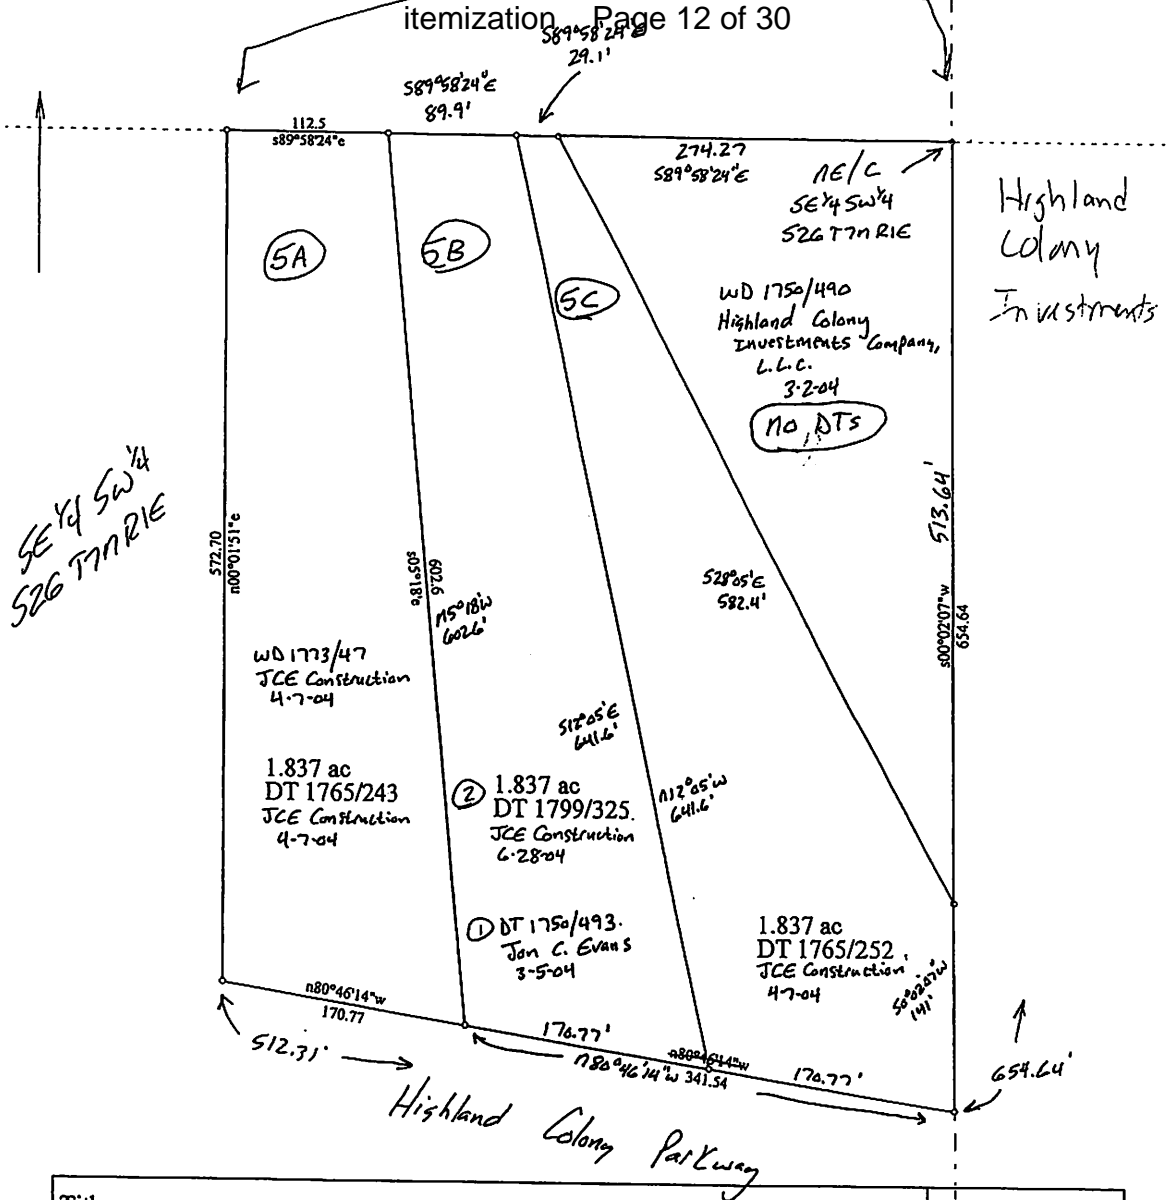 itemization Page 12 of 30
S89°58'24"E
29.1'
S89°58'24"E
89.9'
112.5
s89°58'24"e
274.27
S89°58'24"E
NE/C
SE¼ SW¼
S26 T7N R1E
Highland
Colony
Investments
5A
5B
5C
WD 1750/490
Highland Colony
Investments Company,
L.L.C.
3-2-04
no DTs
SE¼ SW¼
S26 T7N R1E
572.70
n00°01'51"e
602.6
s05°18'e
N5°18'W
602.6'
S28°05'E
582.4'
513.64'
s00°02'07"w
654.64
WD 1773/47
JCE Construction
4-7-04
S12°05'E
641.6'
N12°05'W
641.6'
1.837 ac
DT 1765/243
JCE Construction
4-7-04
2 1.837 ac
DT 1799/325.
JCE Construction
6-28-04
1 DT 1750/493.
Jon C. Evans
3-5-04
1.837 ac
DT 1765/252
JCE Construction
4-7-04
S0°02'07"W
141'
n80°46'14"w
170.77
170.77'
n80°46'14"w
N80°46'14"W 341.54
170.77'
512.31'
654.64'
Highland Colony Parkway